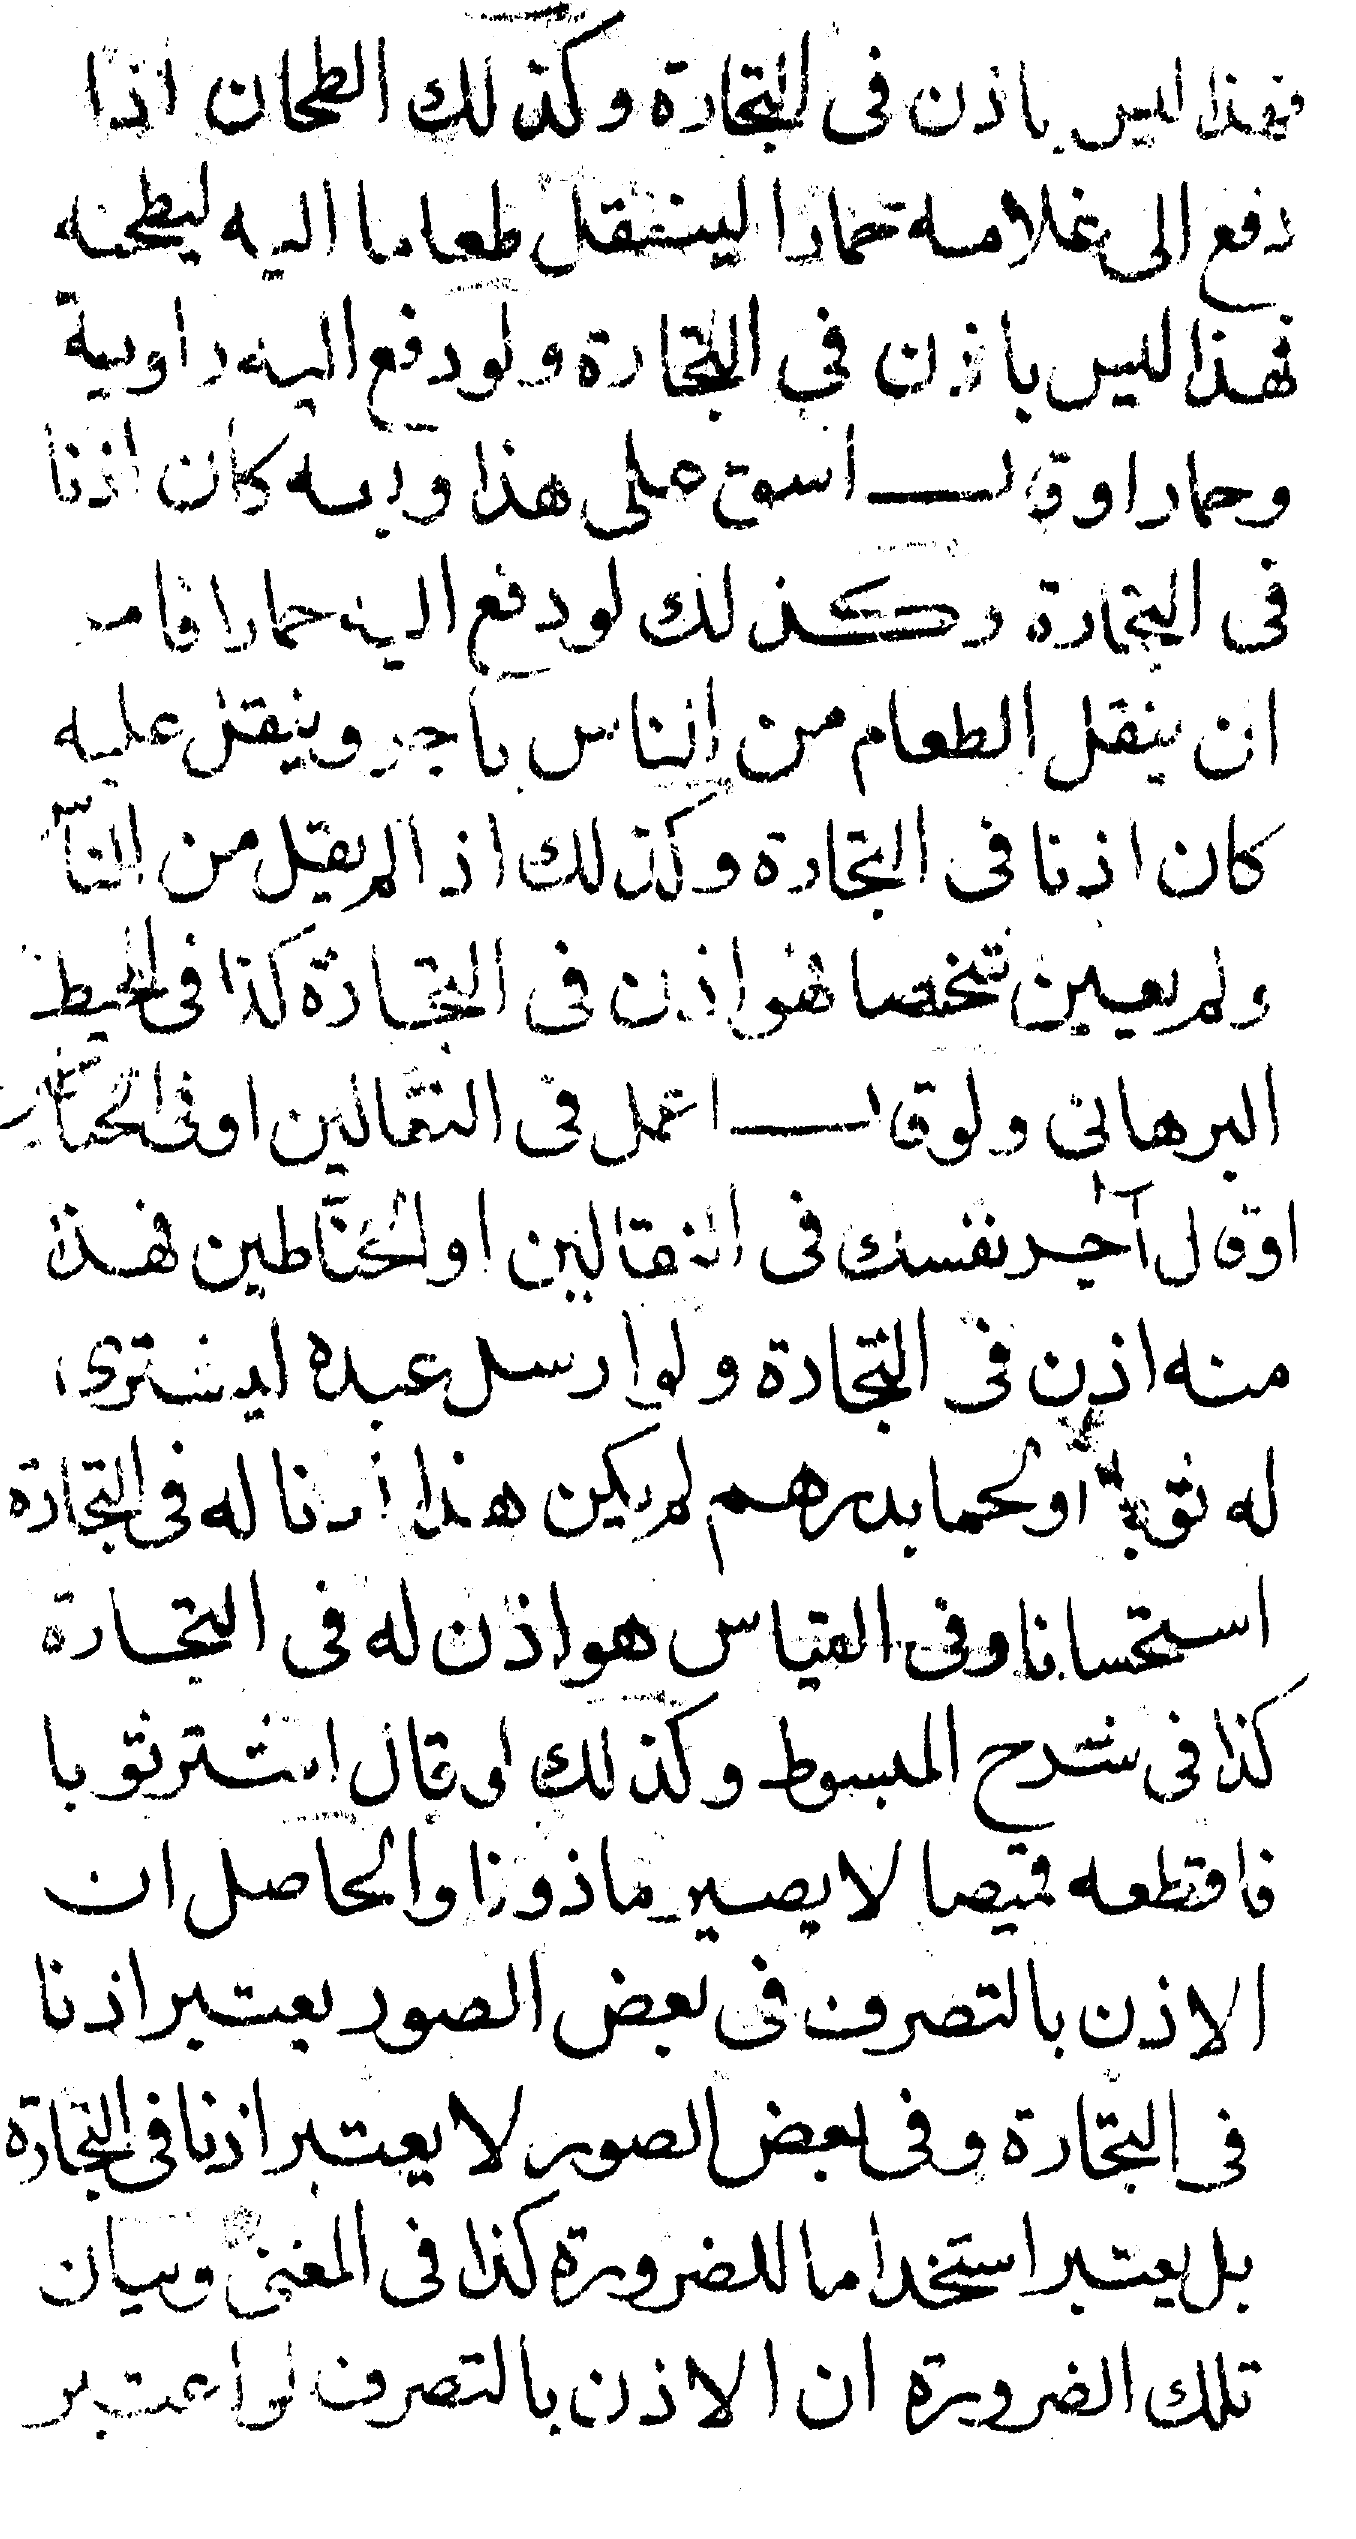 فهذا ليس باذن فى التجارة وكذلك الطحان اذا
دفع الى غلامه حمارا لينقل طعاما اليه ليطحنه
فهذا ليس باذن في التجارة ولو دفع اليه راوية
وحمارا وقال اسق على هذا وبعه كان اذنا
فى التجارة وكذلك لو دفع اليه حمارا فامر
ان ينقل الطعام من الناس باجر وينقل عليه
كان اذنا فى التجارة وكذلك اذا لم يقل من الناس
ولم يعين شخصا فهو اذن فى التجارة كذا فى المحيط
البرهانى ولو قال اعمل فى النقالين او فى الحناطين
او قال آجر نفسك فى النقالين او الحناطين فهذا
منه اذن فى التجارة ولو ارسل عبده ليشترى
له ثوبا او لحما بدرهم لم يكن هذا اذنا له فى التجارة
استحسانا وفى القياس هو اذن له فى التجارة
كذا فى شرح المبسوط وكذلك لو قال اشتر ثوبا
فاقطعه قميصا لا يصير ماذونا والحاصل ان
الاذن بالتصرف فى بعض الصور يعتبر اذنا
فى التجارة وفى بعض الصور لا يعتبر اذنا فى التجارة
بل يعتبر استخداما للضرورة كذا فى المغنى وبيان
تلك الضرورة ان الاذن بالتصرف لو اعتبر